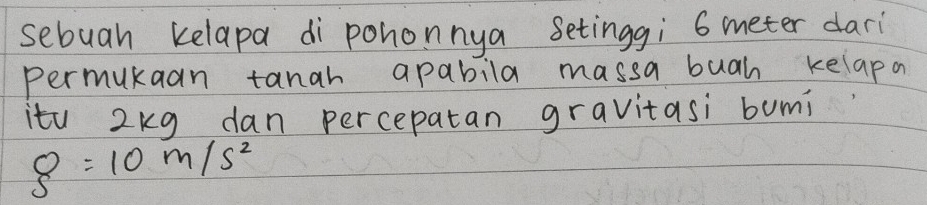 sebuah kelapa di pohonnya setinggi 6 meter dari
permukaan tanah apabila massa buah kelapa
itu 2kg dan percepatan gravitasi bumi
g = 10 m/s²